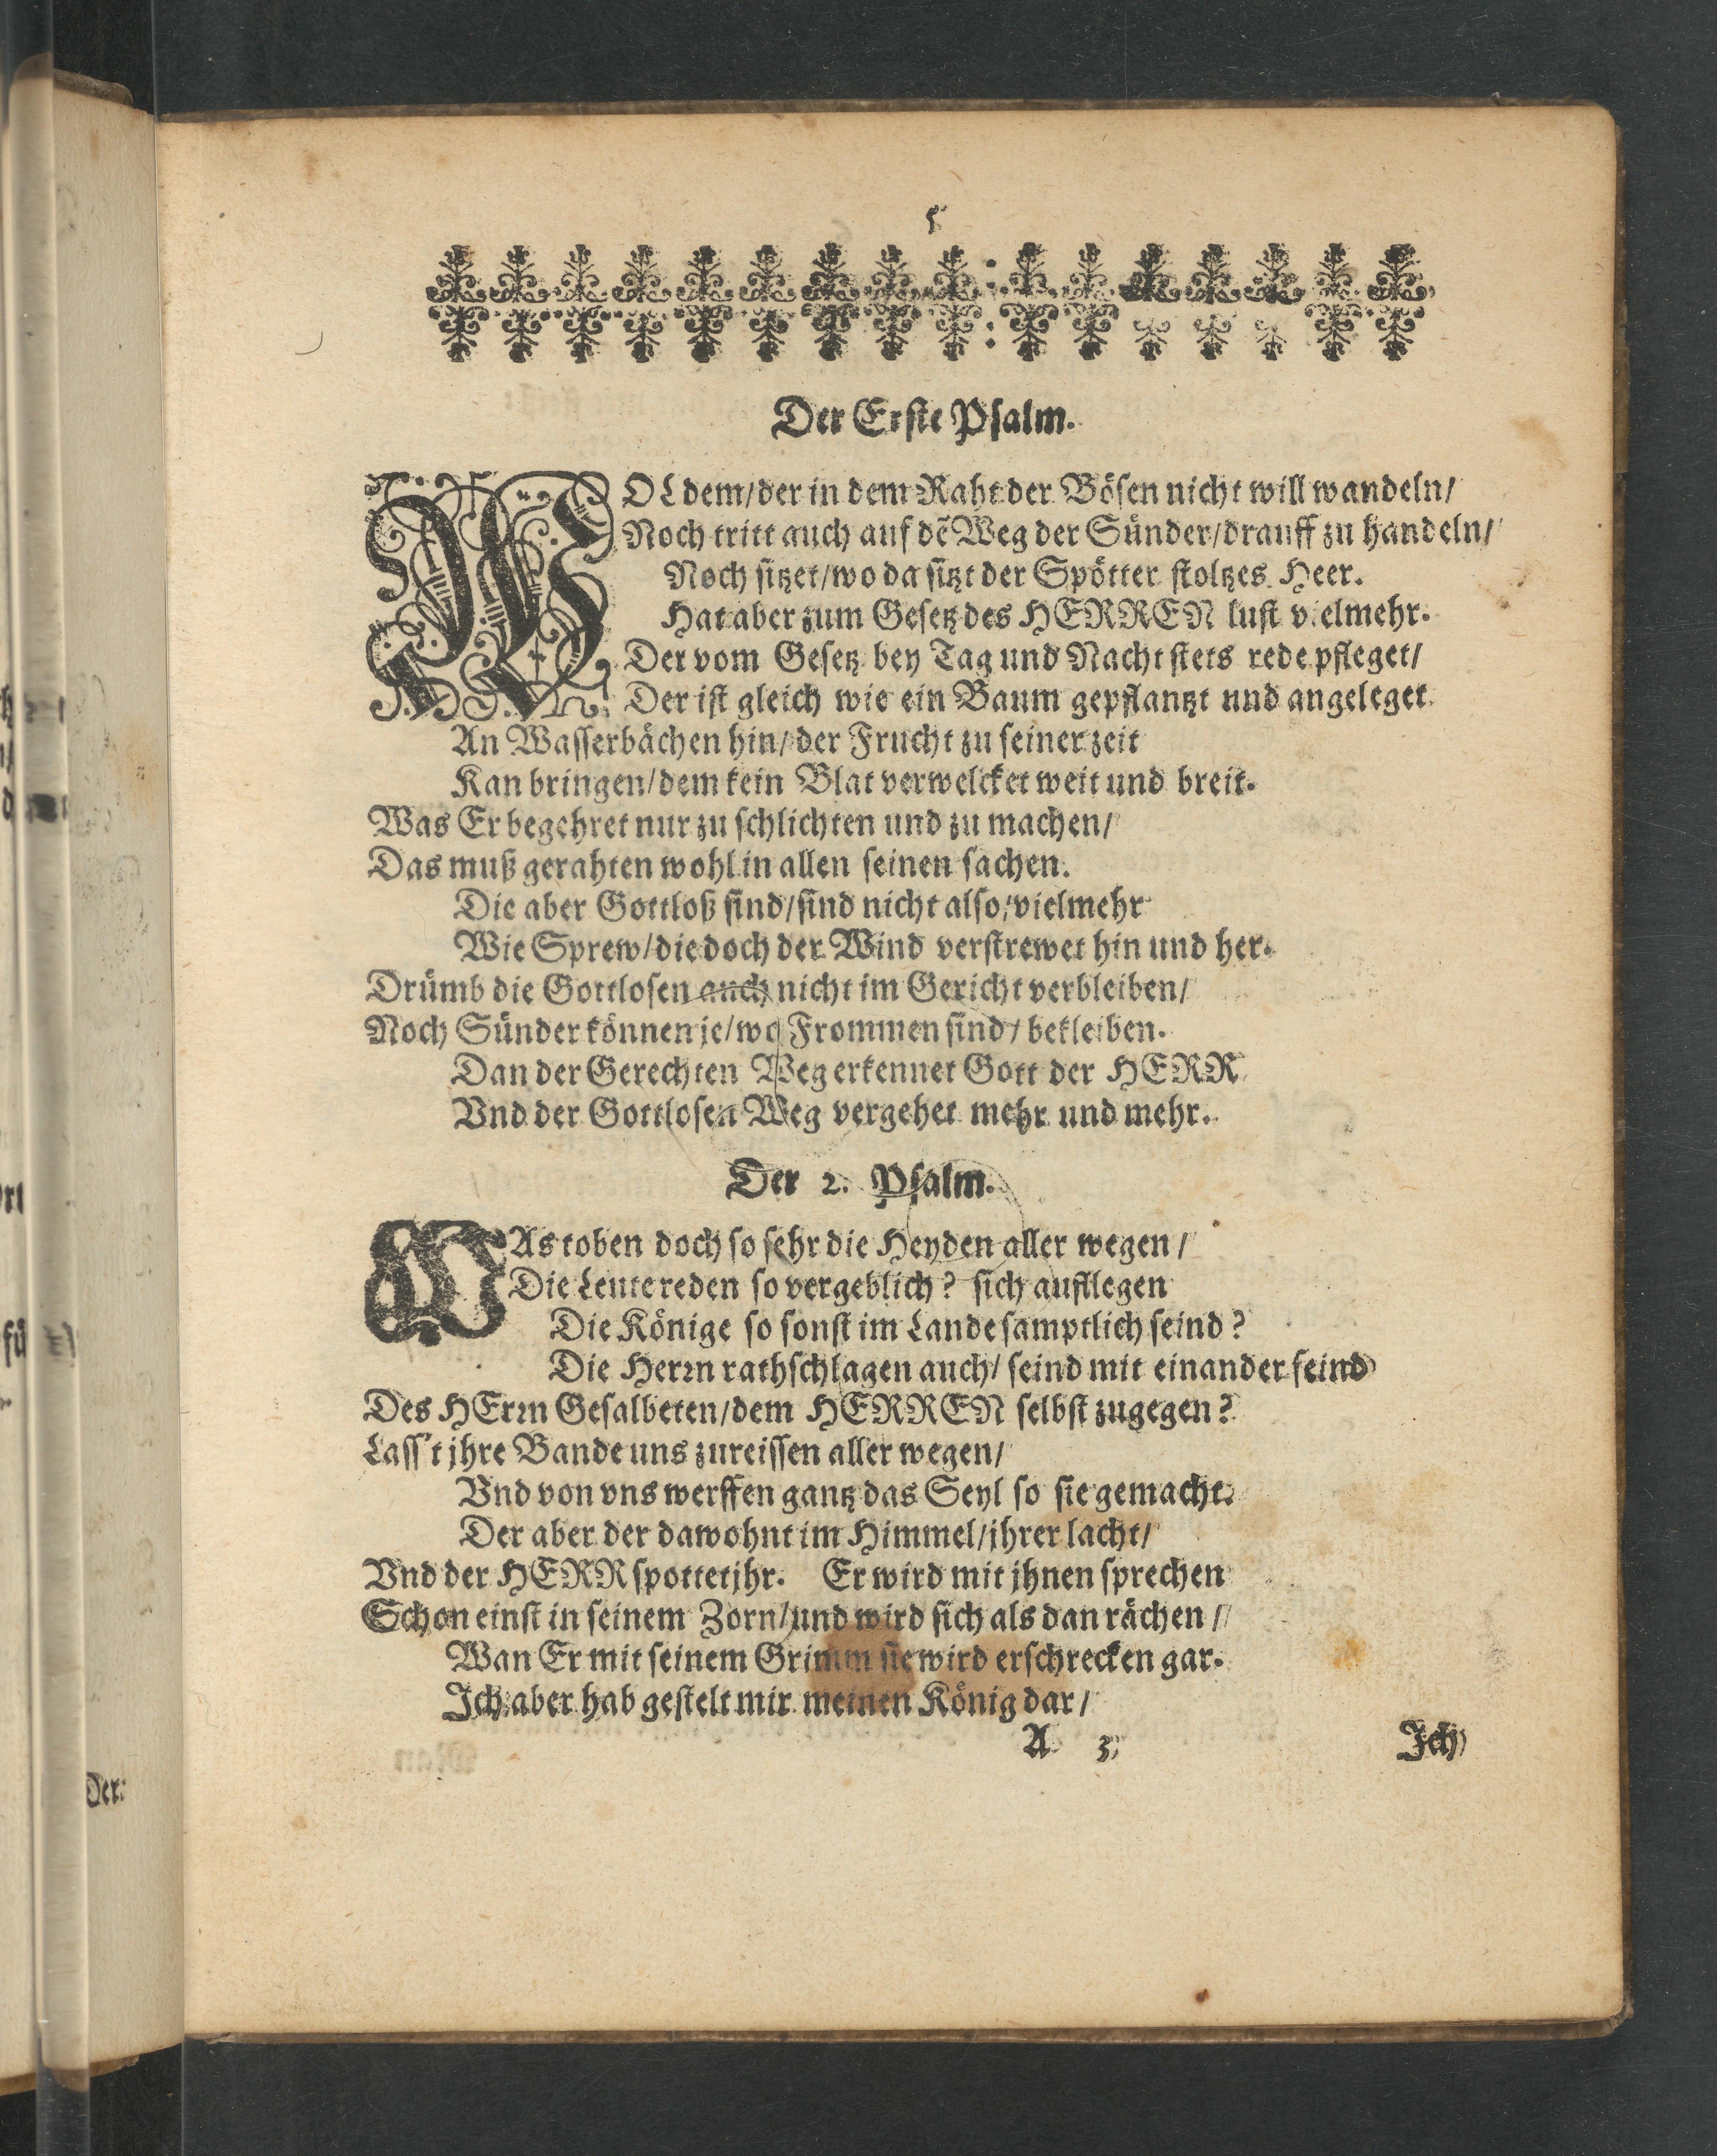 5
Der Erste Psalm.
WOL dem/der in dem Raht der Bösen nicht will wandeln/
Noch tritt auch auf dẽ Weg der Sünder/drauff zu handeln/
Noch sitzet/wo da sitzt der Spötter stoltzes Heer.
Hat aber zum Gesetz des HERREN lust vielmehr.
Der vom Gesetz bey Tag und Nacht stets rede pfleget/
Der ist gleich wie ein Baum gepflantzt und angeleget
An Wasserbächen hin/der Frucht zu seiner zeit
Kan bringen/dem kein Blat verwelcket weit und breit.
Was Er begehret nur zu schlichten und zu machen/
Das muß gerahten wohl in allen seinen sachen.
Die aber Gottloß sind/sind nicht also/vielmehr
Wie Sprew/die doch der Wind verstrewet hin und her.
Drümb die Gottlosen auch nicht im Gericht verbleiben/
Noch Sünder können je/wo Frommen sind/bekleiben.
Dan der Gerechten Weg erkennet Gott der HERR
Vnd der Gottlosen Weg vergehet mehr und mehr.
Der 2. Psalm.
WAs toben doch so sehr die Heyden aller wegen/
Die Leute reden so vergeblich? sich aufflegen
Die Könige so sonst im Lande samptlich seind?
Die Herrn rathschlagen auch/seind mit einander feind
Des HErrn Gesalbeten/dem HERREN selbst zugegen?
Lass't jhre Bande uns zureissen aller wegen/
Vnd von vns werffen gantz das Seyl so sie gemacht.
Der aber der da wohnt im Himmel/jhrer lacht/
Vnd der HERR spottet jhr. Er wird mit jhnen sprechen
Schon einst in seinem Zorn/und wird sich als dan rächen/
Wan Er mit seinem Grimm sie wird erschrecken gar.
Ich aber hab gestelt mir meinen König dar/
A 3
Ich
Der